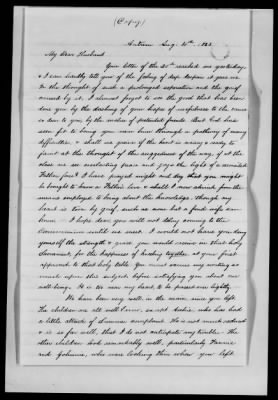 (Copy)
Antrim Aug. 30th 183
My Dear Husband
Your letter of the 20th reached me yesterday
& I can hardly tell you of the feeling of deep despair it gave me
In the thought of such a prolonged separation and the grief
caused by it, I almost forgot to see the good that has been
done you by the dashing of your hopes of usefulness to the cause
so dear to you, by the malice of pretended friends. But God has
seen fit to bring you near him through a pathway of many
difficulties, & shall we grieve if the heart is weary & ready to
faint at the thought of the ruggedness of the way, if at the
close we see everlasting peace and joys the light of a reconciled
Father's face? I have prayed night and day that you might
be brought to know a Father's love & shall I now shrink from the
means employed to bring about this knowledge, though my
heart is torn by grief, such as none but a fond wife can
know. I hope dear you will not delay coming to the
Communion until we meet. I would not have you deny
yourself the strength & grace you would receive in that holy
Sacrament for the happiness of kneeling together at your first
approach to that holy table. You must excuse my writing so
much upon this subject before satisfying you about our
well-being. It is too near my heart to be passed over lightly.
We have been very well in the main since you left.
The children are all well now, except Archie, who has had
a little attack of Summer complaint. He is not much reduced
& is so far well, that I do not anticipate any trouble. The
other children look remarkably well, particularly Fannie
and Johnnie, who were looking thin when you left